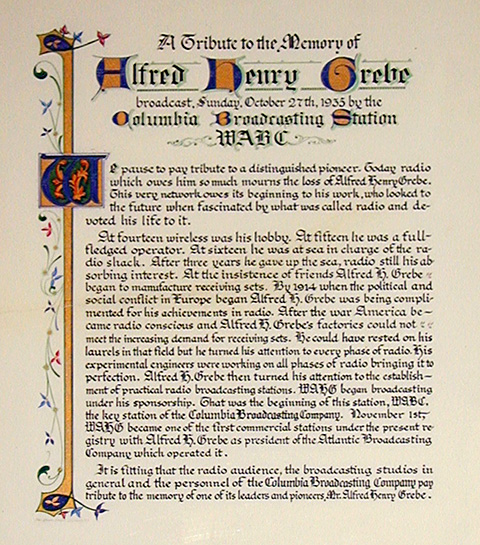 A Tribute to the Memory of
Alfred Henry Grebe
broadcast, Sunday, October 27th, 1935 by the
Columbia Broadcasting Station
WABC
We pause to pay tribute to a distinguished pioneer. Today radio
which owes him so much mourns the loss of Alfred Henry Grebe.
This very network owes its beginning to his work, who looked to
the future when fascinated by what was called radio and de-
voted his life to it.
At fourteen wireless was his hobby. At fifteen he was a full-
fledged operator. At sixteen he was at sea in charge of the ra-
dio shack. After three years he gave up the sea, radio still his ab
sorbing interest. At the insistence of friends Alfred H. Grebe
began to manufacture receiving sets. By 1914 when the political and
social conflict in Europe began Alfred H. Grebe was being compli-
mented for his achievements in radio. After the war America be-
came radio conscious and Alfred H. Grebe's factories could not
meet the increasing demand for receiving sets. He could have rested on his
laurels in that field but he turned his attention to every phase of radio. His
experimental engineers were working on all phases of radio bringing it to
perfection. Alfred H. Grebe then turned his attention to the establish-
ment of practical radio broadcasting stations. WAHG began broadcasting
under his sponsorship. That was the beginning of this station, WABC,
the key station of the Columbia Broadcasting Company. November 1st,
WAHG became one of the first commercial stations under the present re-
gistry with Alfred H. Grebe as president of the Atlantic Broadcasting
Company which operated it.
It is fitting that the radio audience, the broadcasting studios in
general and the personnel of the Columbia Broadcasting Company pay
tribute to the memory of one of its leaders and pioneers, Mr. Alfred Henry Grebe.